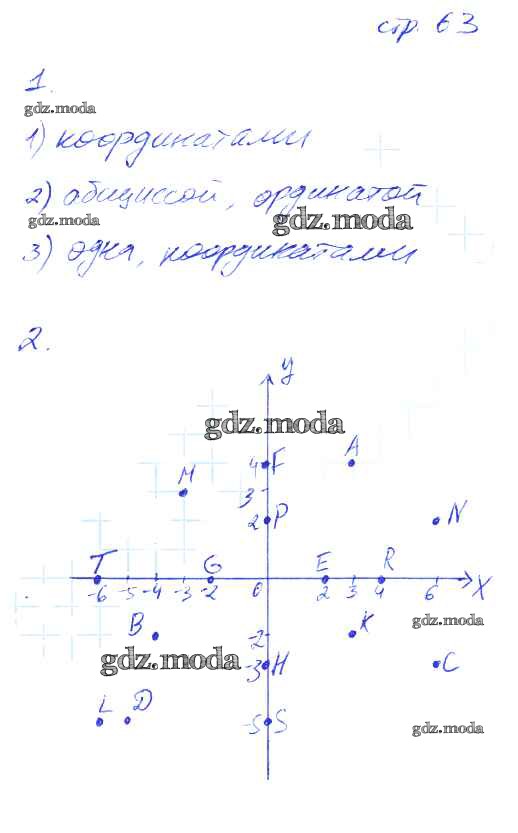 стр. 63
1.
gdz.moda
1) координатами
2) абциссой, ординатой
gdz.moda
gdz.moda
3) одна, координатами
2.
y
gdz.moda
4 F
A
M
3
2 P
N
T
G
E
R
-6 -5 -4 -3 -2 0 2 3 4 6 X
B
-2
K
gdz.moda
gdz.moda
-3 H
C
L
D
-5 S
gdz.moda